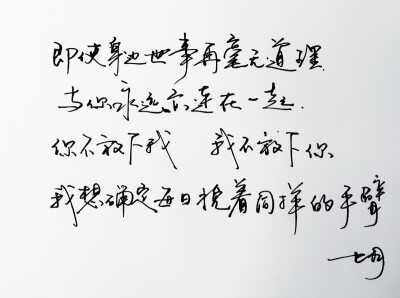 即使身边世事再毫无道理
与你永远亦连在一起
你不放下我 我不放下你
我想确定每日挽着同样的手臂